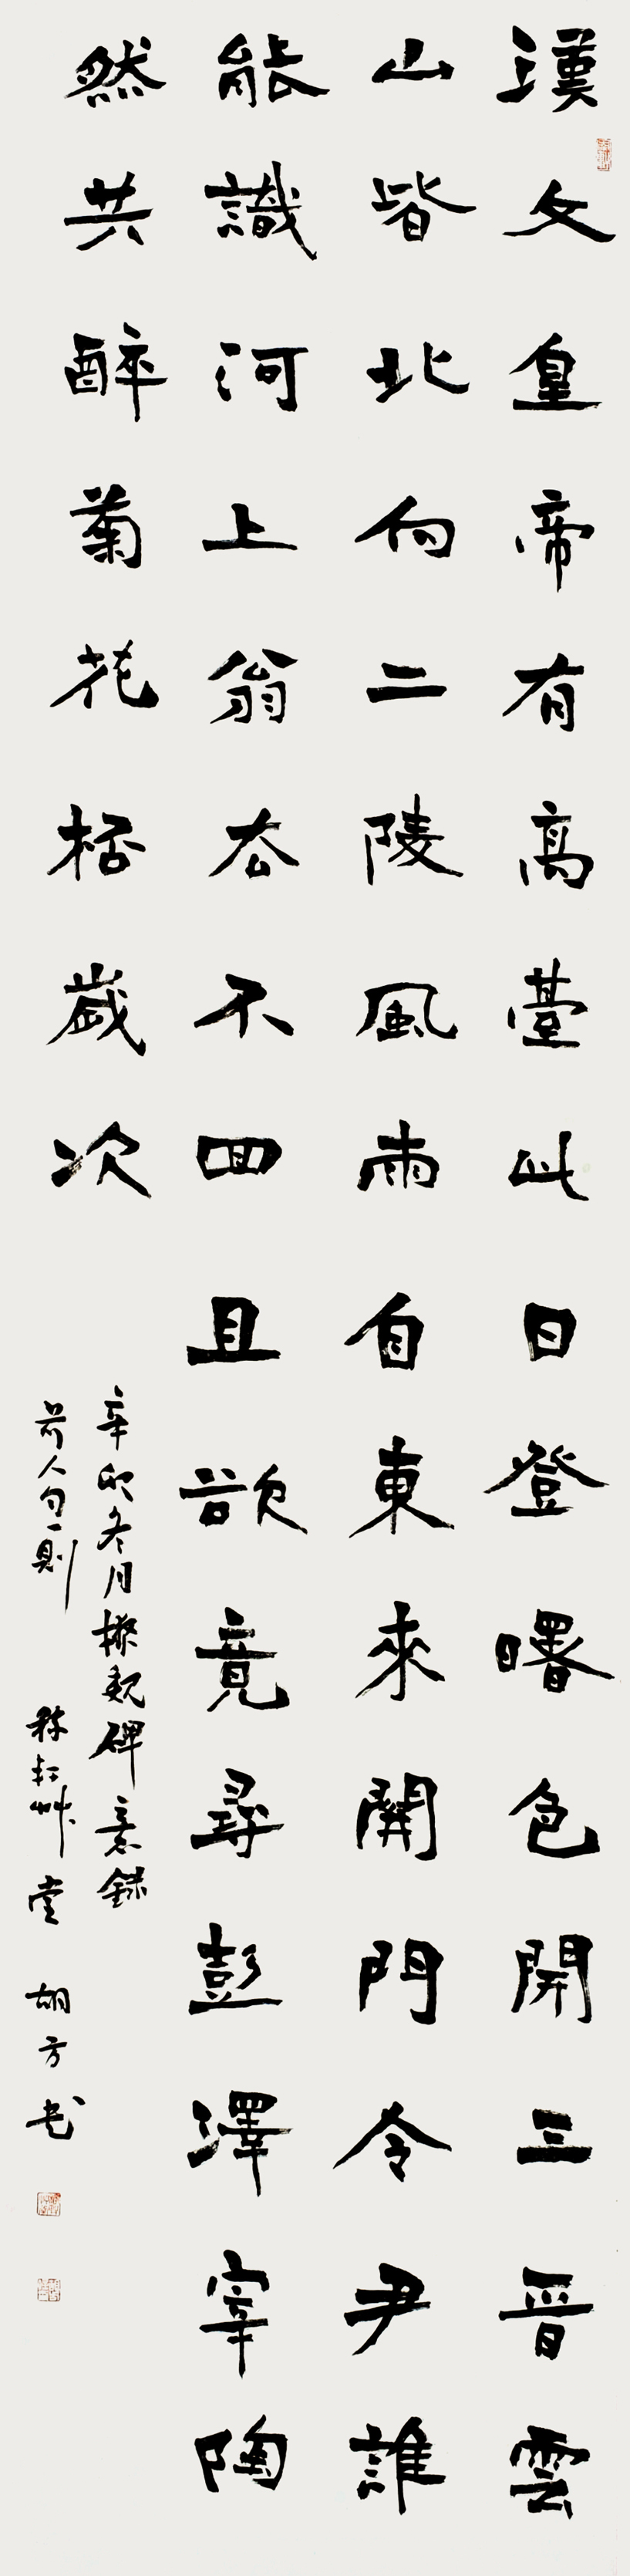 漢文皇帝有高臺此日登曙色開三晉雲
山皆北向二陵風雨自東來關門令尹誰
能識河上翁去不囬且欲竟尋彭澤宰陶
然共醉菊花桮歲次
辛卯冬月橅魏碑意錄
前人句一則 紅艸堂 胡方书